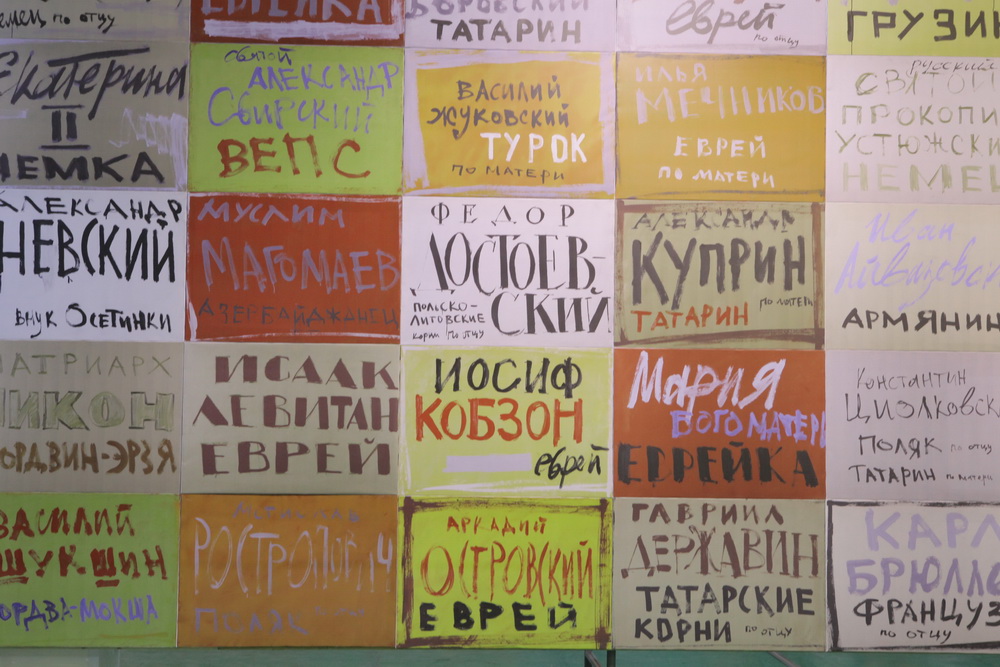 по отцу
ЕВРЕЙКА
ТАТАРИН
еврей
по отцу
ГРУЗИН
Екатерина
II
НЕМКА
святой
АЛЕКСАНДР
Свирский
ВЕПС
ВАСИЛИЙ
ЖУКОВСКИЙ
ТУРОК
ПО МАТЕРИ
ИЛЬЯ
МЕЧНИКОВ
ЕВРЕЙ
ПО МАТЕРИ
русский
СВЯТОЙ
ПРОКОПИ
УСТЮЖСКИ
НЕМЕЦ
АЛЕКСАНДР
НЕВСКИЙ
ВНУК ОСЕТИНКИ
МУСЛИМ
МАГОМАЕВ
АЗЕРБАЙДЖАНЕЦ
ФЕДОР
ДОСТОЕВ-
СКИЙ
ПОЛЬСКО-
ЛИТОВСКИЕ
корни по отцу
АЛЕКСАНДР
КУПРИН
по матери
ТАТАРИН
Иван
Айвазовс
АРМЯНИН
ПАТРИАРХ
НИКОН
МОРДВИН-ЭРЗЯ
ИСААК
ЛЕВИТАН
ЕВРЕЙ
ИОСИФ
КОБЗОН
еврей
Мария
БОГОМАТЕРЬ
ЕВРЕЙКА
Константин
Циолковск
ПОЛЯК по отцу
ТАТАРИН по матери
ВАСИЛИЙ
ШУКШИН
МОРДВА-МОКША
РОСТРОПОВИЧ
ПОЛЯК
АРКАДИЙ
ОСТРОВСКИЙ
ЕВРЕЙ
ГАВРИИЛ
ДЕРЖАВИН
ТАТАРСКИЕ
КОРНИ по отцу
КАРЛ
БРЮЛЛО
ФРАНЦУЗ
по отцу